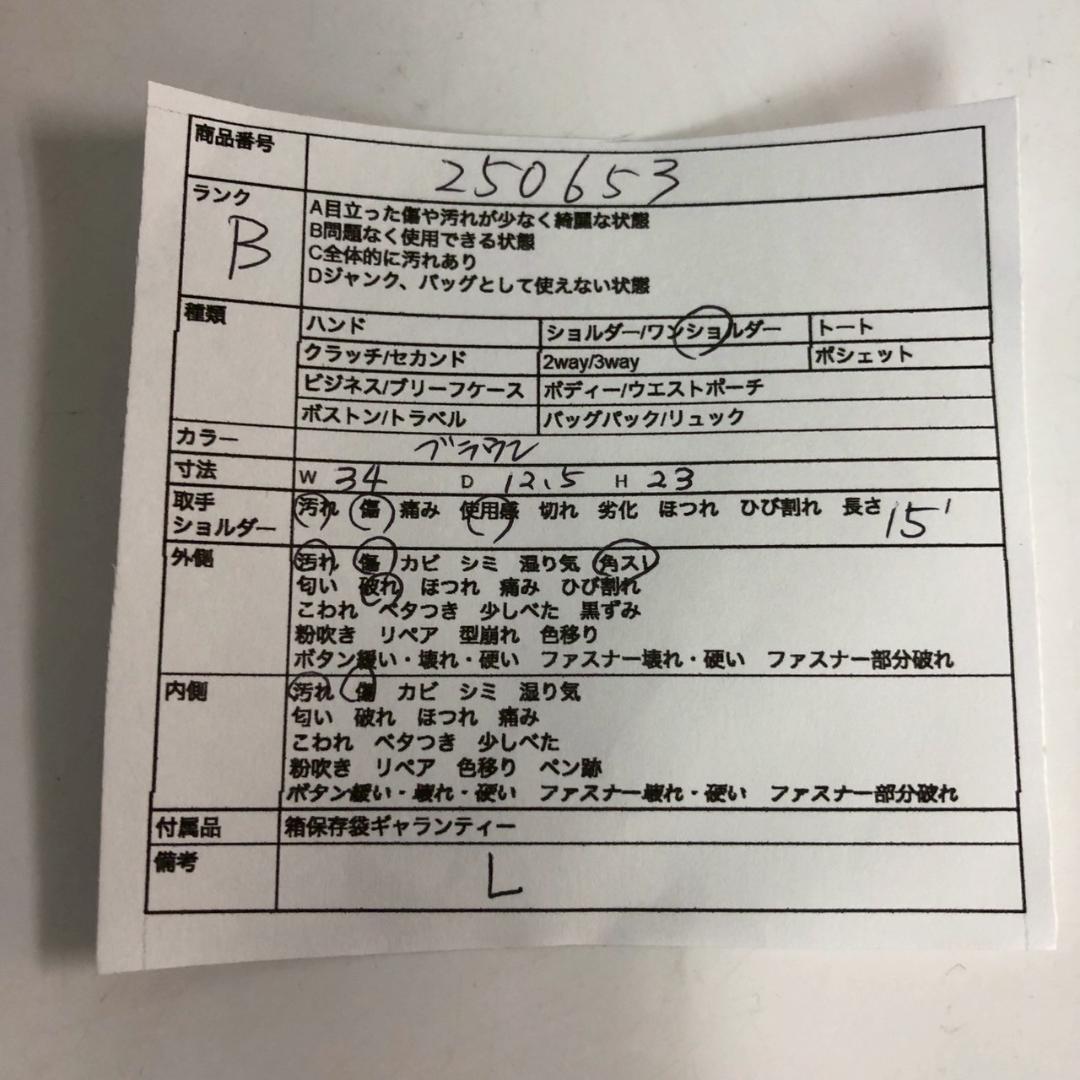 商品番号 250653
ランク B
A目立った傷や汚れが少なく綺麗な状態
B問題なく使用できる状態
C全体的に汚れあり
Dジャンク、バッグとして使えない状態
種類
ハンド ショルダー/ワンショルダー トート
クラッチ/セカンド 2way/3way ポシェット
ビジネス/ブリーフケース ボディー/ウエストポーチ
ボストン/トラベル バッグパック/リュック
カラー ブラウン
寸法 W 34 D 12.5 H 23
取手
ショルダー
汚れ 傷 痛み 使用感 切れ 劣化 ほつれ ひび割れ 長さ 15
外側 汚れ 傷 カビ シミ 湿り気 角スレ
匂い 破れ ほつれ 痛み ひび割れ
こわれ ベタつき 少しべた 黒ずみ
粉吹き リペア 型崩れ 色移り
ボタン緩い・壊れ・硬い ファスナー壊れ・硬い ファスナー部分破れ
内側 汚れ 傷 カビ シミ 湿り気
匂い 破れ ほつれ 痛み
こわれ ベタつき 少しべた
粉吹き リペア 色移り ペン跡
ボタン緩い・壊れ・硬い ファスナー壊れ・硬い ファスナー部分破れ
付属品 箱保存袋ギャランティー
備考 L